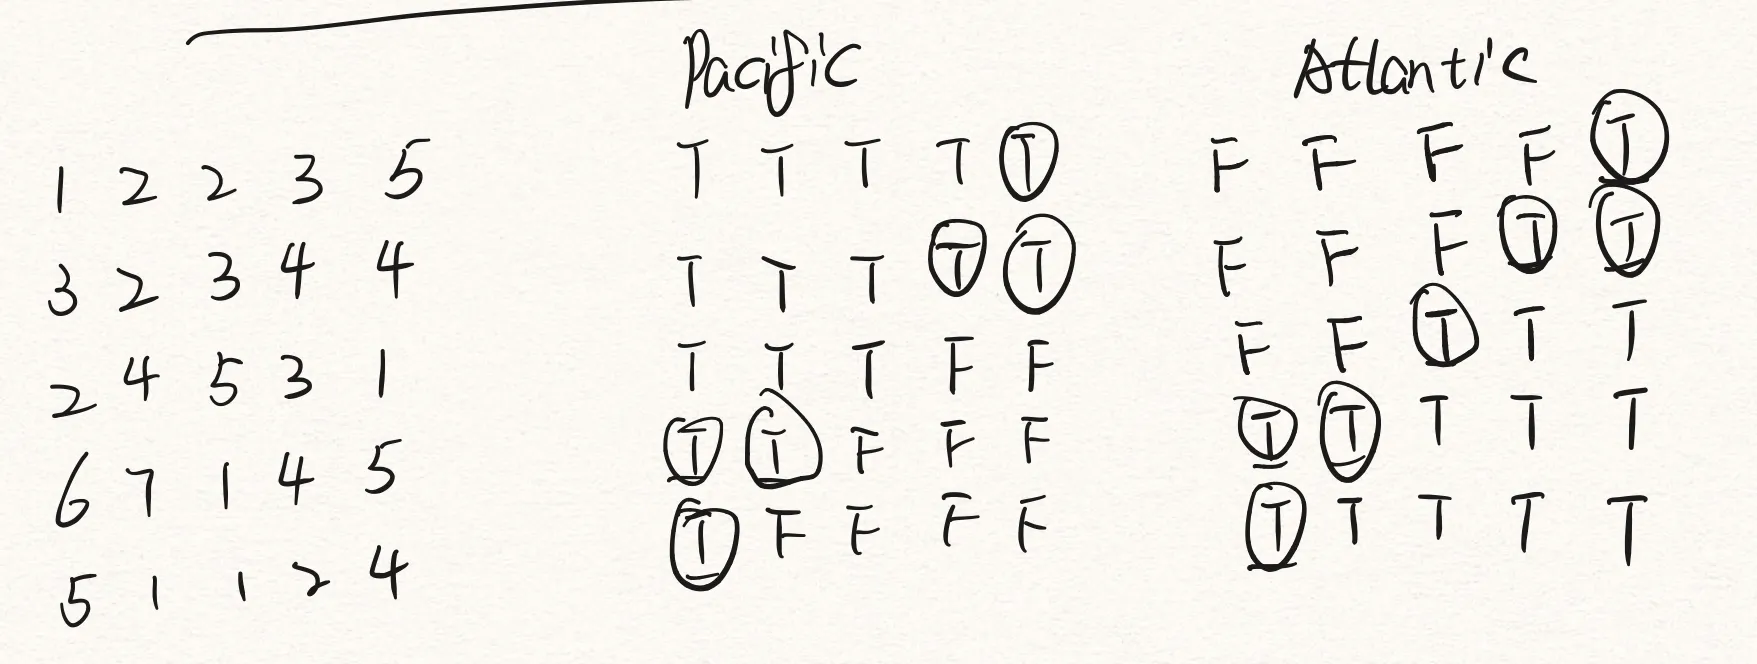 Pacific Atlantic
1 2 2 3 5 T T T T T F F F F T
3 2 3 4 4 T T T T T F F F T T
2 4 5 3 1 T T T F F F F T T T
6 7 1 4 5 T T F F F T T T T T
5 1 1 2 4 T F F F F T T T T T